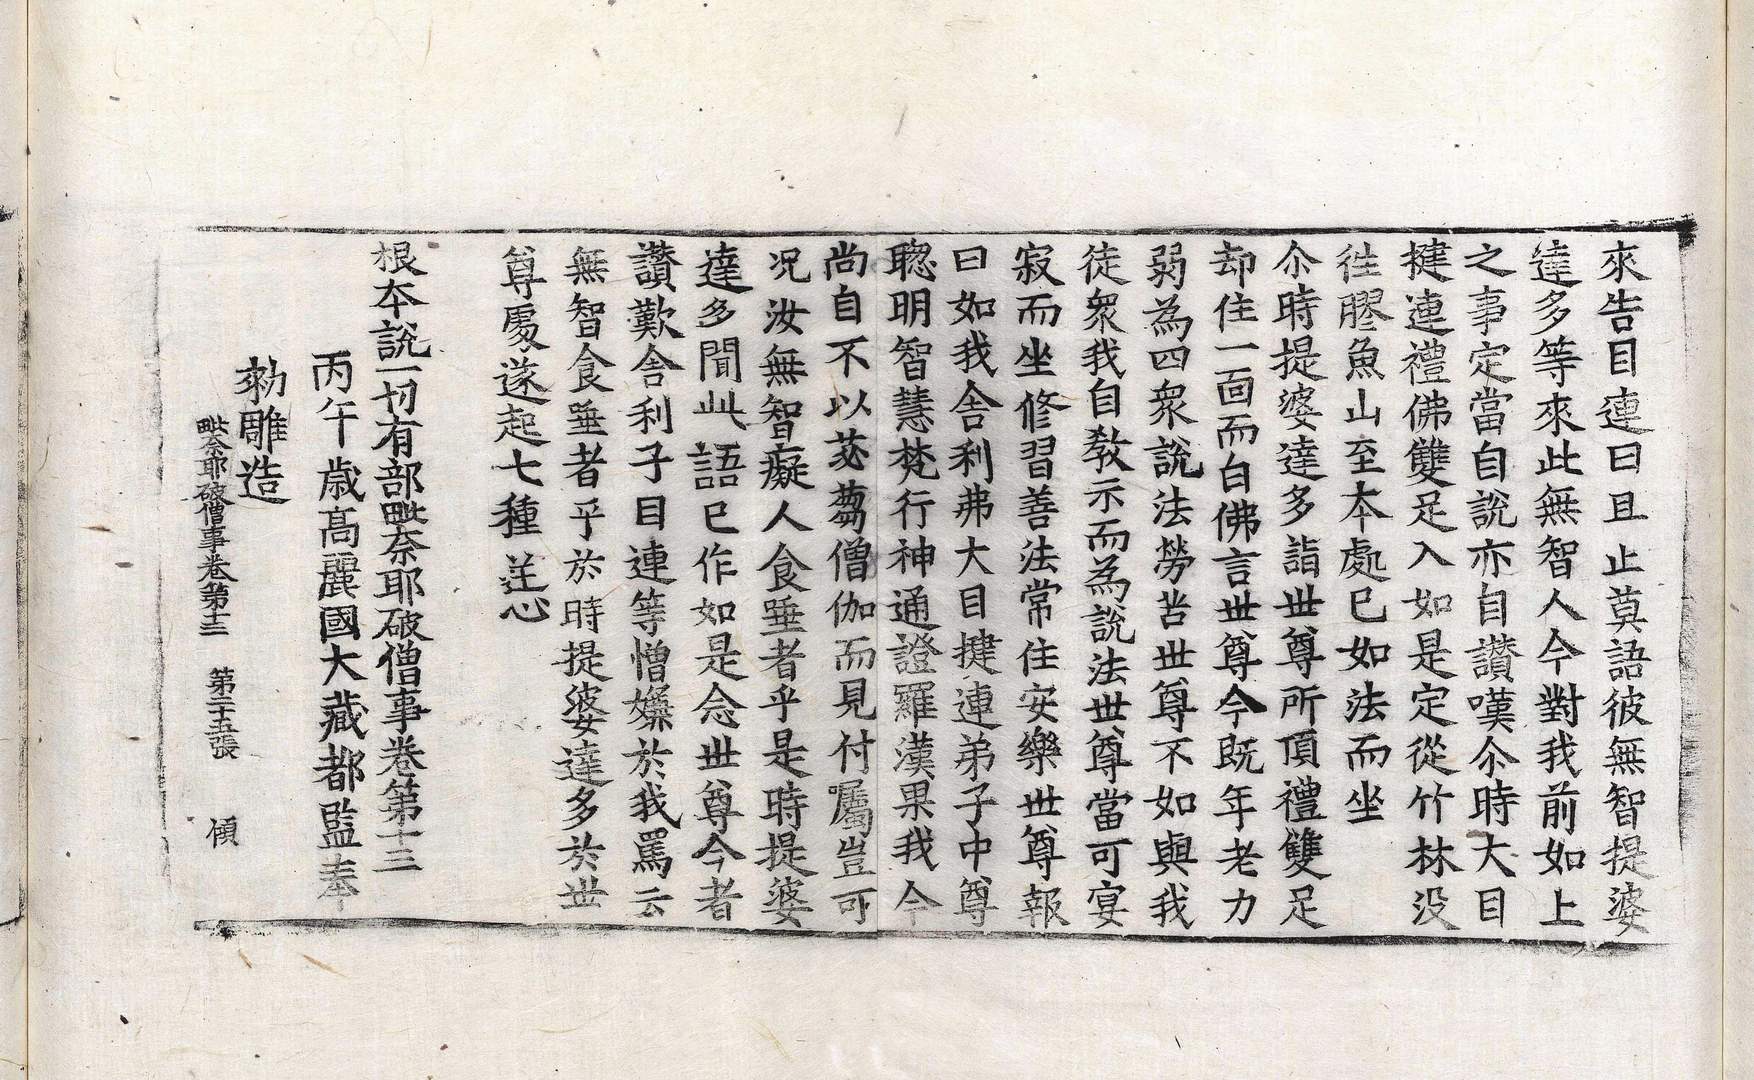 來告目連曰且止莫語彼無智提婆
達多等來此無智人今對我前如上
之事定當自說亦自讃嘆尒時大目
揵連禮佛雙足入如是定從竹林没
徃膠魚山至本處已如法而坐
尒時提婆達多詣世尊所頂禮雙足
却住一面而白佛言世尊今既年老力
弱為四衆說法勞苦世尊不如與我
徒衆我自教示而為說法世尊當可宴
寂而坐修習善法常住安樂世尊報
曰如我舍利弗大目揵連弟子中尊
聦明智慧梵行神通證羅漢果我今
尚自不以苾蒭僧伽而見付囑豈可
况汝無智癡人食唾者乎是時提婆
達多聞此語已作如是念世尊今者
讃歎舍利子目連等憎嫌於我罵云
無智食唾者乎於時提婆達多於世
尊處遂起七種逆心
根本說一切有部毗奈耶破僧事卷第十三
丙午歳高麗國大藏都監奉
勑雕造
毗奈耶破僧事卷第十三 第二十五張 傾